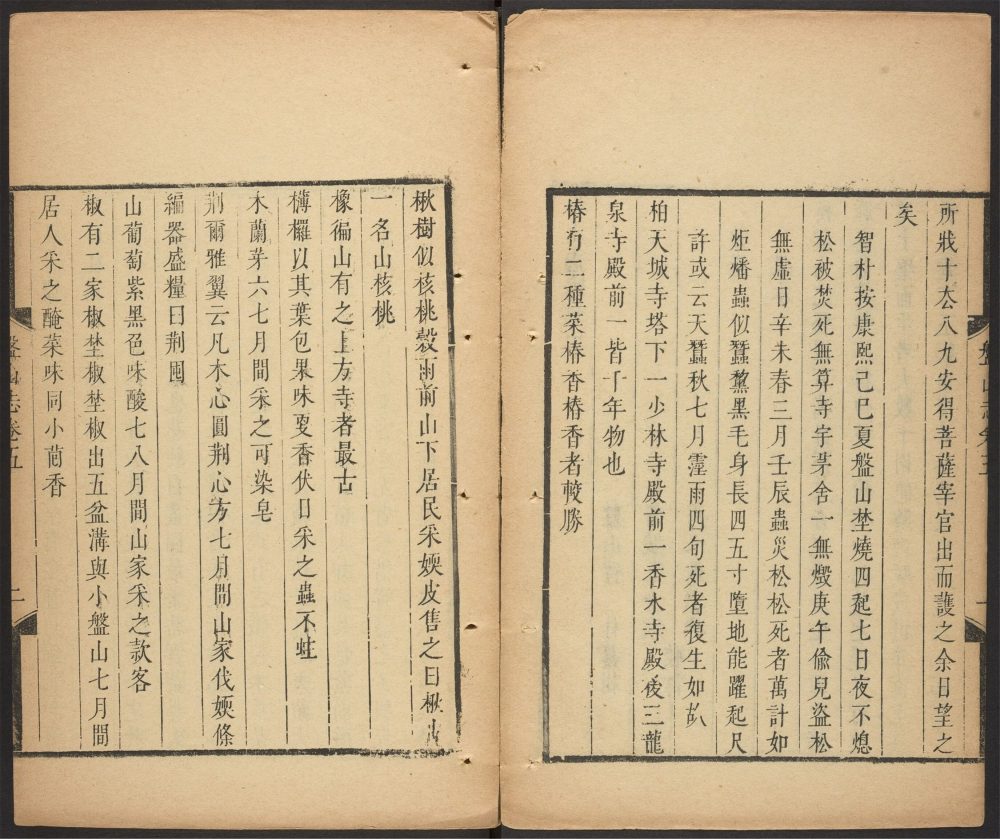 所戕十去八九安得菩薩宰官出而護之余日望之
矣
智朴按康熙己巳夏盤山埜燒四起七日夜不熄
松被焚死無算寺宇茅舍一無燬庚午偷兒盜松
無虛日辛未春三月壬辰蟲災松松死者萬計如
炬燔蟲似蠶黧黑毛身長四五寸墮地能躍起尺
許或云天蠶秋七月霪雨四旬死者復生如故
柏天城寺塔下一少林寺殿前一香水寺殿後三龍
泉寺殿前一皆千年物也
椿有二種菜椿香椿香者較勝
盤山志卷五
一
楸樹似核桃穀雨前山下居民采嫩皮售之曰楸皮
一名山核桃
橡徧山有之上方寺者最古
槫欏以其葉包果味更香伏日采之蟲不蛀
木蘭芽六七月間采之可染皂
荆爾雅翼云凡木心圓荆心方七月間山家伐嫩條
編器盛糧曰荆囤
山葡萄紫黑色味酸七八月間山家采之款客
椒有二家椒埜椒埜椒出五盆溝與小盤山七月間
居人采之醃菜味同小茴香
盤山志卷五
二